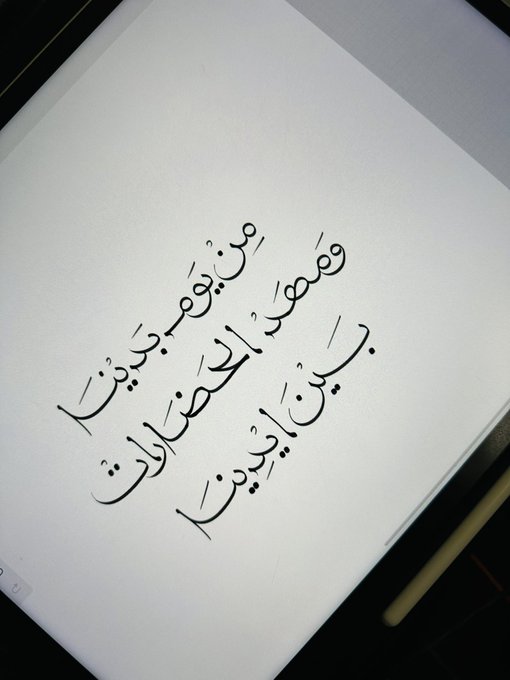 مِنْ يَومْ بَدَيْنَا
وَمَهَدْ الحَضَارَاتْ
بَيْنَ ايْدِينَا